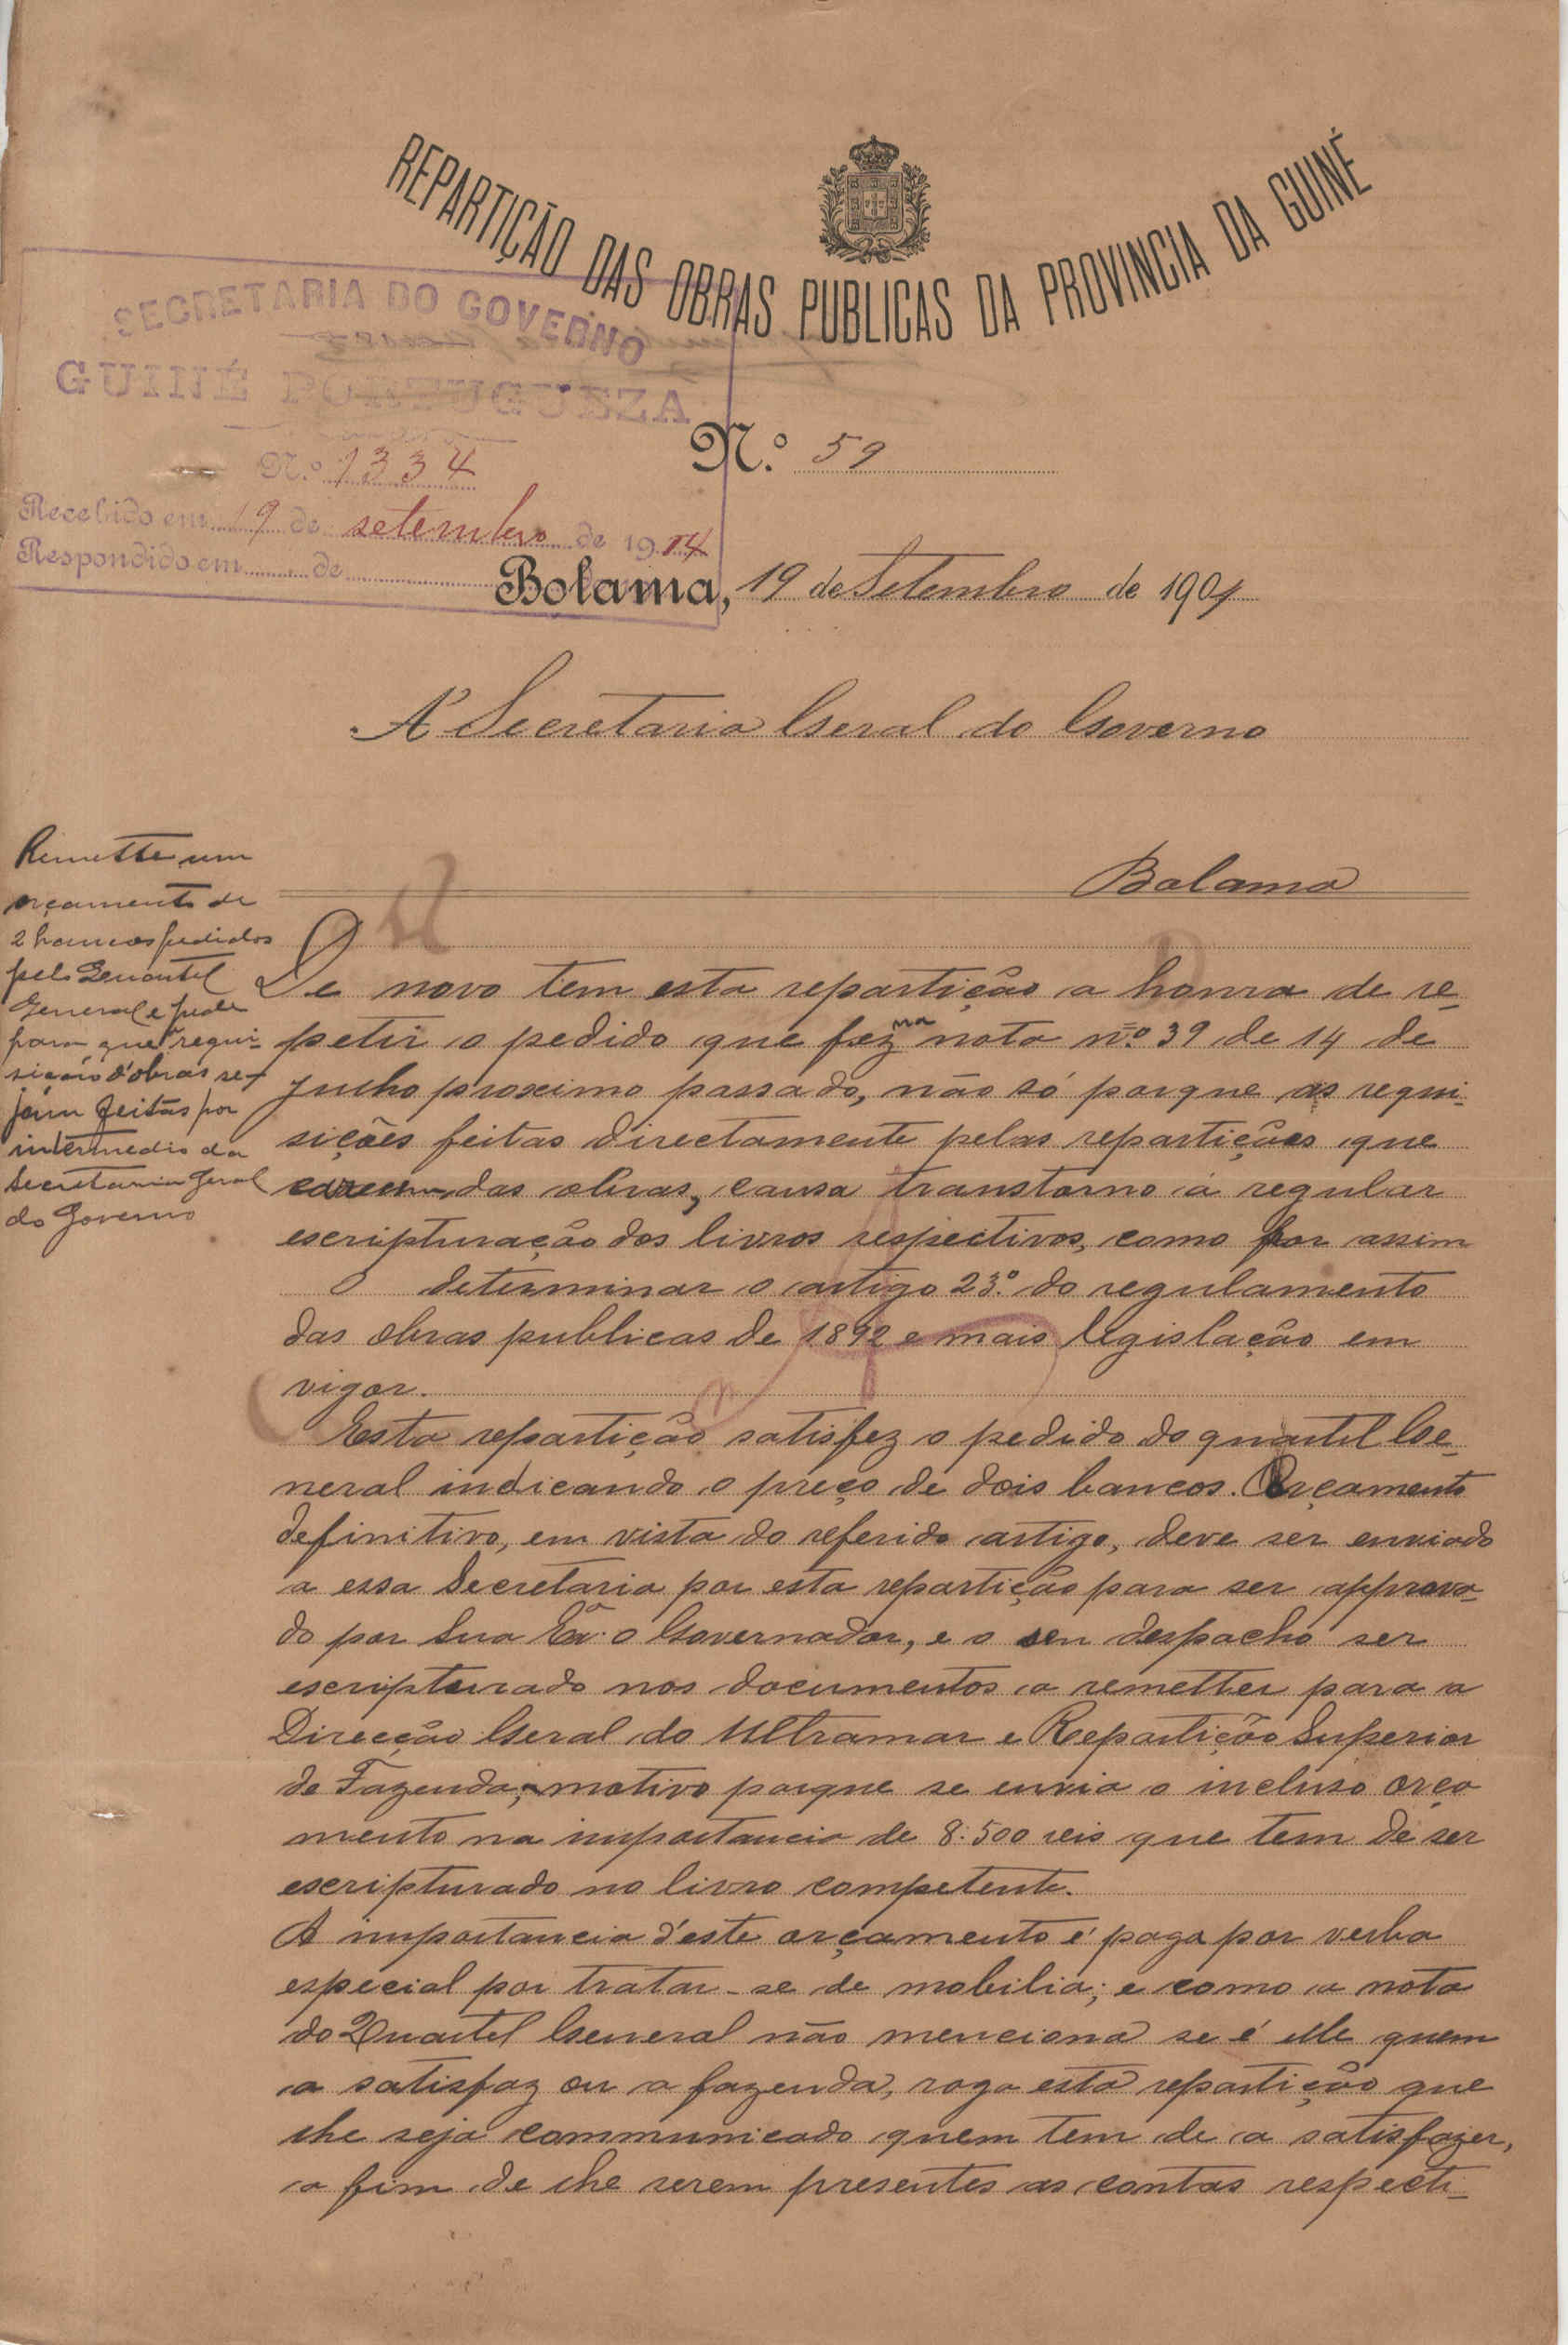 REPARTIÇÃO DAS OBRAS PUBLICAS DA PROVINCIA DA GUINÉ
SECRETARIA DO GOVERNO
GUINÉ PORTUGUEZA
N.º 1334
Recebido em 19 de setembro de 1904
Respondido em de
N.º 59
Bolama, 19 de Setembro de 1904
Á Secretaria Geral do Governo
Bolama
Remette um
orçamento de
2 bancos pedidos
pelo Quartel
General e pede
para que requi-
sições d'obras se-
jam feitas por
intermedio da
Secretaria Geral
do Governo
De novo tem esta repartição a honra de re-
petir o pedido que fez na nota n.º 39 de 14 de
julho proximo passado, não só porque as requi-
sições feitas directamente pelas repartições que
carecem das obras, causa transtorno á regular
escripturação dos livros respectivos, como por assim
o determinar o artigo 23.º do regulamento
das obras publicas de 1892 e mais legislação em
vigor.
Esta repartição satisfez o pedido do quartel Ge-
neral indicando o preço de dois bancos. Orçamento
definitivo, em vista do referido artigo, deve ser enviado
a essa Secretaria por esta repartição para ser approva-
do por Sua Exª o Governador, e o seu despacho ser
escripturado nos documentos a remetter para a
Direcção Geral do Ultramar e Repartição Superior
de Fazenda, motivo porque se envia o incluso orça
mento na importancia de 8.500 reis que tem de ser
escripturado no livro competente.
A importancia d'este orçamento é paga por verba
especial por tratar-se de mobilia; e como a nota
do Quartel General não menciona se é elle quem
a satisfaz ou a fazenda, roga esta repartição que
lhe seja communicado quem tem de a satisfazer,
a fim de lhe serem presentes as contas respecti-